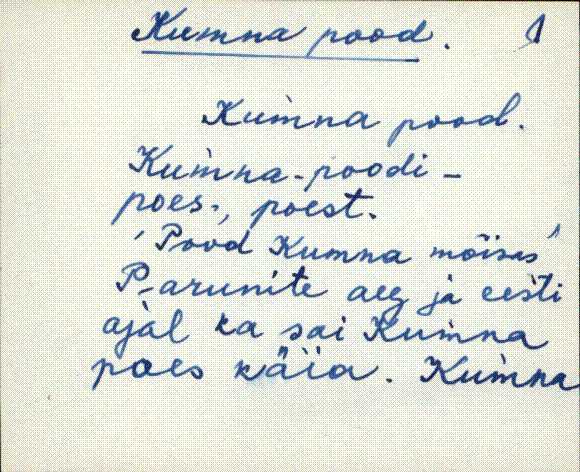 Kumna pood. 1
Kum̀na pood.
Kum̀na-poodi-
poes-, poest.
'Pood Kumna mõisas'
P-arunite aeg ja eesti
ajal ka sai Kum̀na
poes käia. Kum̀na